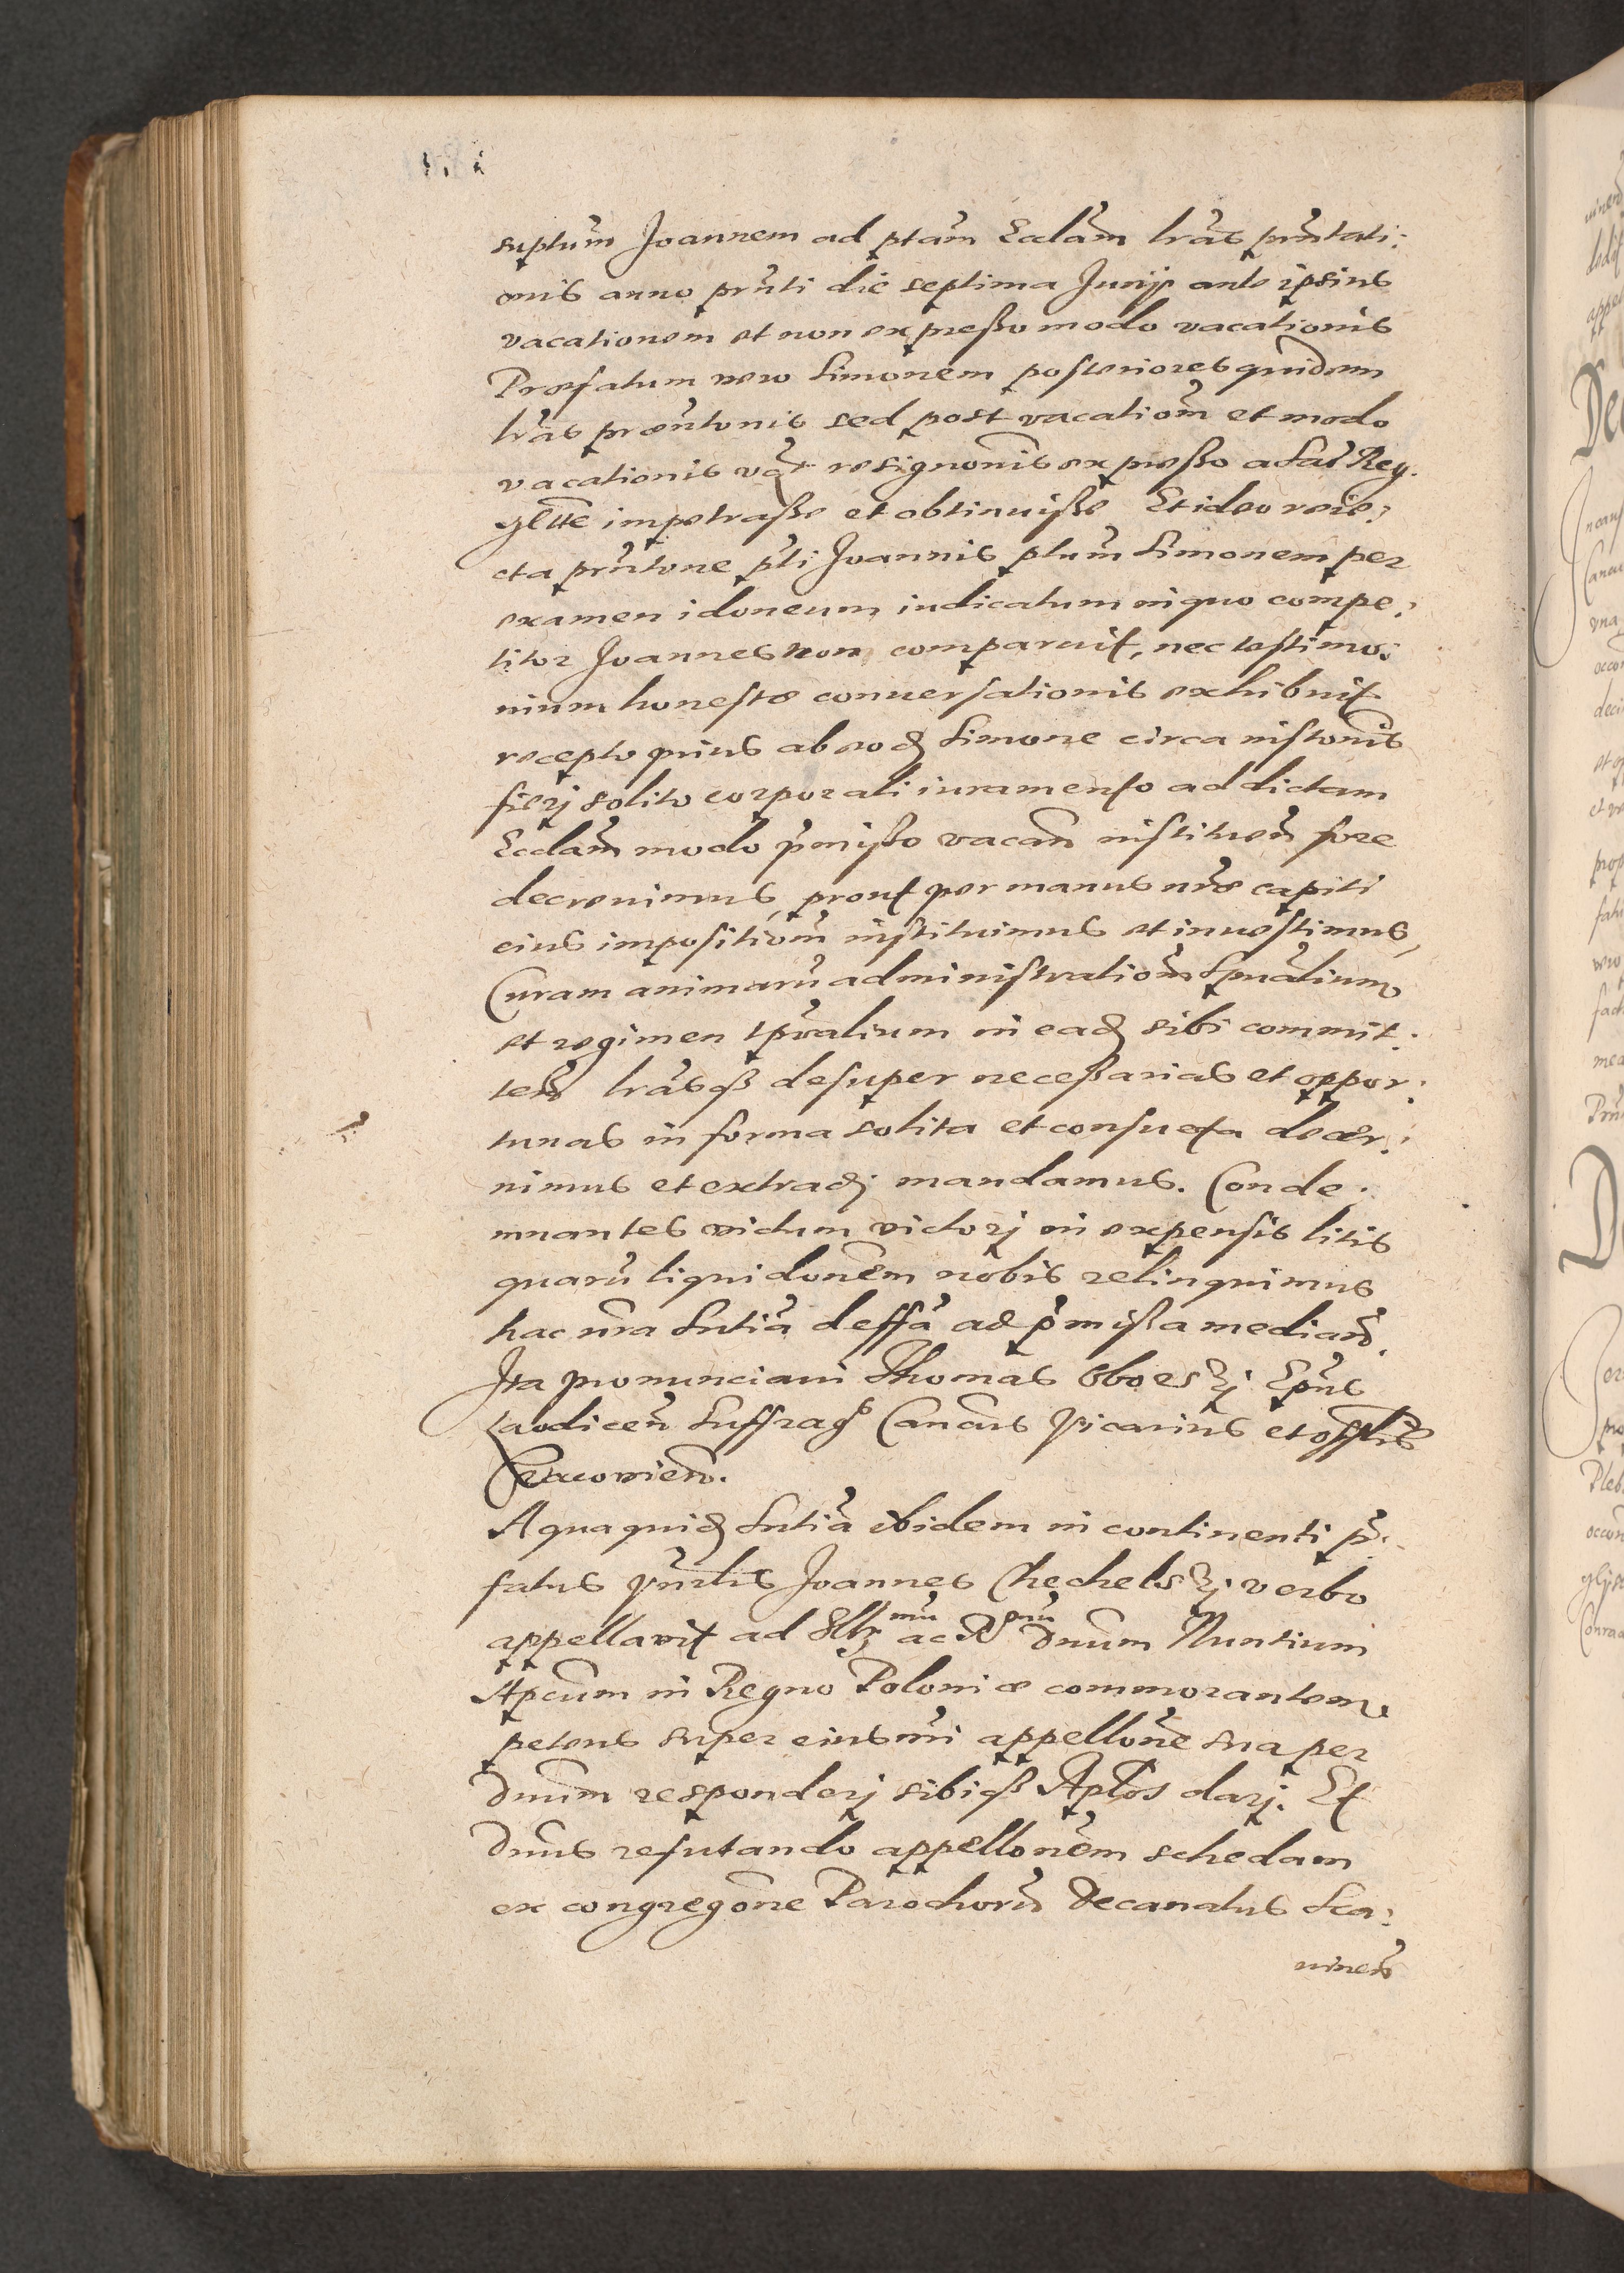 suptum Joannem ad ptam Ecclam lras prntati:
onis anno prnti die septima Junij ante ipsius
vacationem et non expresso modo vacationis
Præfatum vero Simonem posteriores quidem
lras præntonis sed post vacationem et modo
vacationis vz resignonis expresso a Sac. Reg.
impetrasse et obtinuisse Et ideo reie:
cta prntone pti Joannis ptum Simonem per
examen idoneum iudicatum in quo compe:
titor Joannes non comparuit, nec testimo:
nium honestæ conuersationis exhibuit
recepto prius ab eod Simone circa instonis
fierj solito corporali iuramento ad dictam
Ecclam modo pmisso vacan instituen fore
decreuimus, prout per manus nræ capiti
eius impositiom instituimus et inuestimus,
Curam animaru administratiom Spualium
et regimen tpralium in ead sibi commit:
ten lrasq desuper necessarias et oppor:
tunas in forma solita et consueta decer:
nimus et extradj mandamus. Conde:
mnantes victum victorj in expensis litis
quaru liquidonem nobis relinquimus
hac nra Sntia deffa ad pmissa median.
Ita pronunciaui Thomas Oborskj Epus
Laodicen Suffrag Cancus Vicarius et offlis
Cracouien.
A qua quid Sntia ibidem in continenti p:
fatus prnlis Joannes Chechelskj verbo
appellavit ad Illr mu ac R mu Dnum Nuntium
Apcum in Regno Poloniæ commorantem,
petens super eiusmi appellone sua per
Dnum responderj sibiq Aplos darj. Et
Dnus refutando appellonem schedam
ex congregone Parochoru Decanatus Sca:
uinen